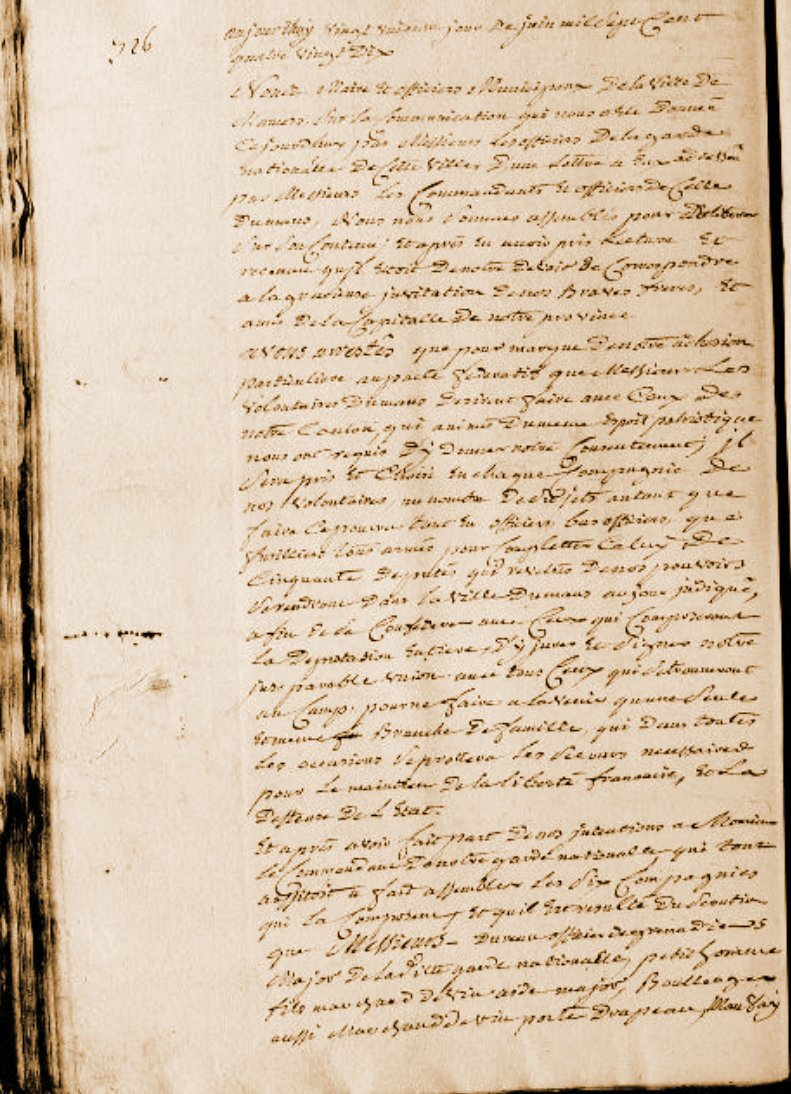 726
aujourdhuy vingt huitieme jour de juin mil sept Cent
quatre vingt dix
Nous Maire et officiers Municipaux de la ville de
Mamers. Sur la Communication qui nous a été donnée
Cejourdhuy par Messieurs les officiers de la garde
nationalle de Cette ville, d'une Lettre a Eux adressée
par Messieurs les Commandants et officiers de Celle
Dumans, Nous nous Sommes assemblés pour deliberer
Sur Son Contenu; Et après En avoir pris Lecture Et
reconnu qu'il Etoit de notre devoir de Correspondre
a la gracieuse invitation de nos Braves freres, Et
amis de la Capitalle de notre province
avons arrestés que pour marque de notre adhesion
particuliere au pacte federatif que Messieurs Les
volontaires Dumans desirent faire avec Ceux des
notre Canton, qui animés du meme Esprit patriotique
nous ont requis d'y donner notre Consentement; il
Sera pris Et Choisi En chaque Compagnie De
nos volontaires, au nombre de sujets autant que
faire Ce pourra tant En officiers bas officiers que
fusilliers tous armés pour Completter Celuy De
Cinquante deputés qui revetus de nos pouvoirs
Serendront dans la ville Dumans au jour indiqué,
afin de se Confederer avec Ceux qui Composeront
la Deputation Entiere, d'y jurer Et Signer notre
inseparable union avec tous Ceux qui Setrouveront
au Camp, pour ne faire a l'avenir qu'une Seule
Et meme Branche de famille, qui dans toutes
les occasions Seprettera les Secours necessaires
pour le maintien de la liberté francaise, Et La
Deffense de L'Etat.
Et après avoir fait part de nos intentions a Monsieur
le Commandant de notre garde nationalle qui tout
aussitôt a fait assembler les Six Compagnies
qui la Composent, Et quil Est resulté du Scrutin
que Messieurs officier de grenadiers
Major de la ditte garde nationalle, petit homme
fils marchand de vin aide major, Boullenger
aussi Marchand de vin porte Drapeau,